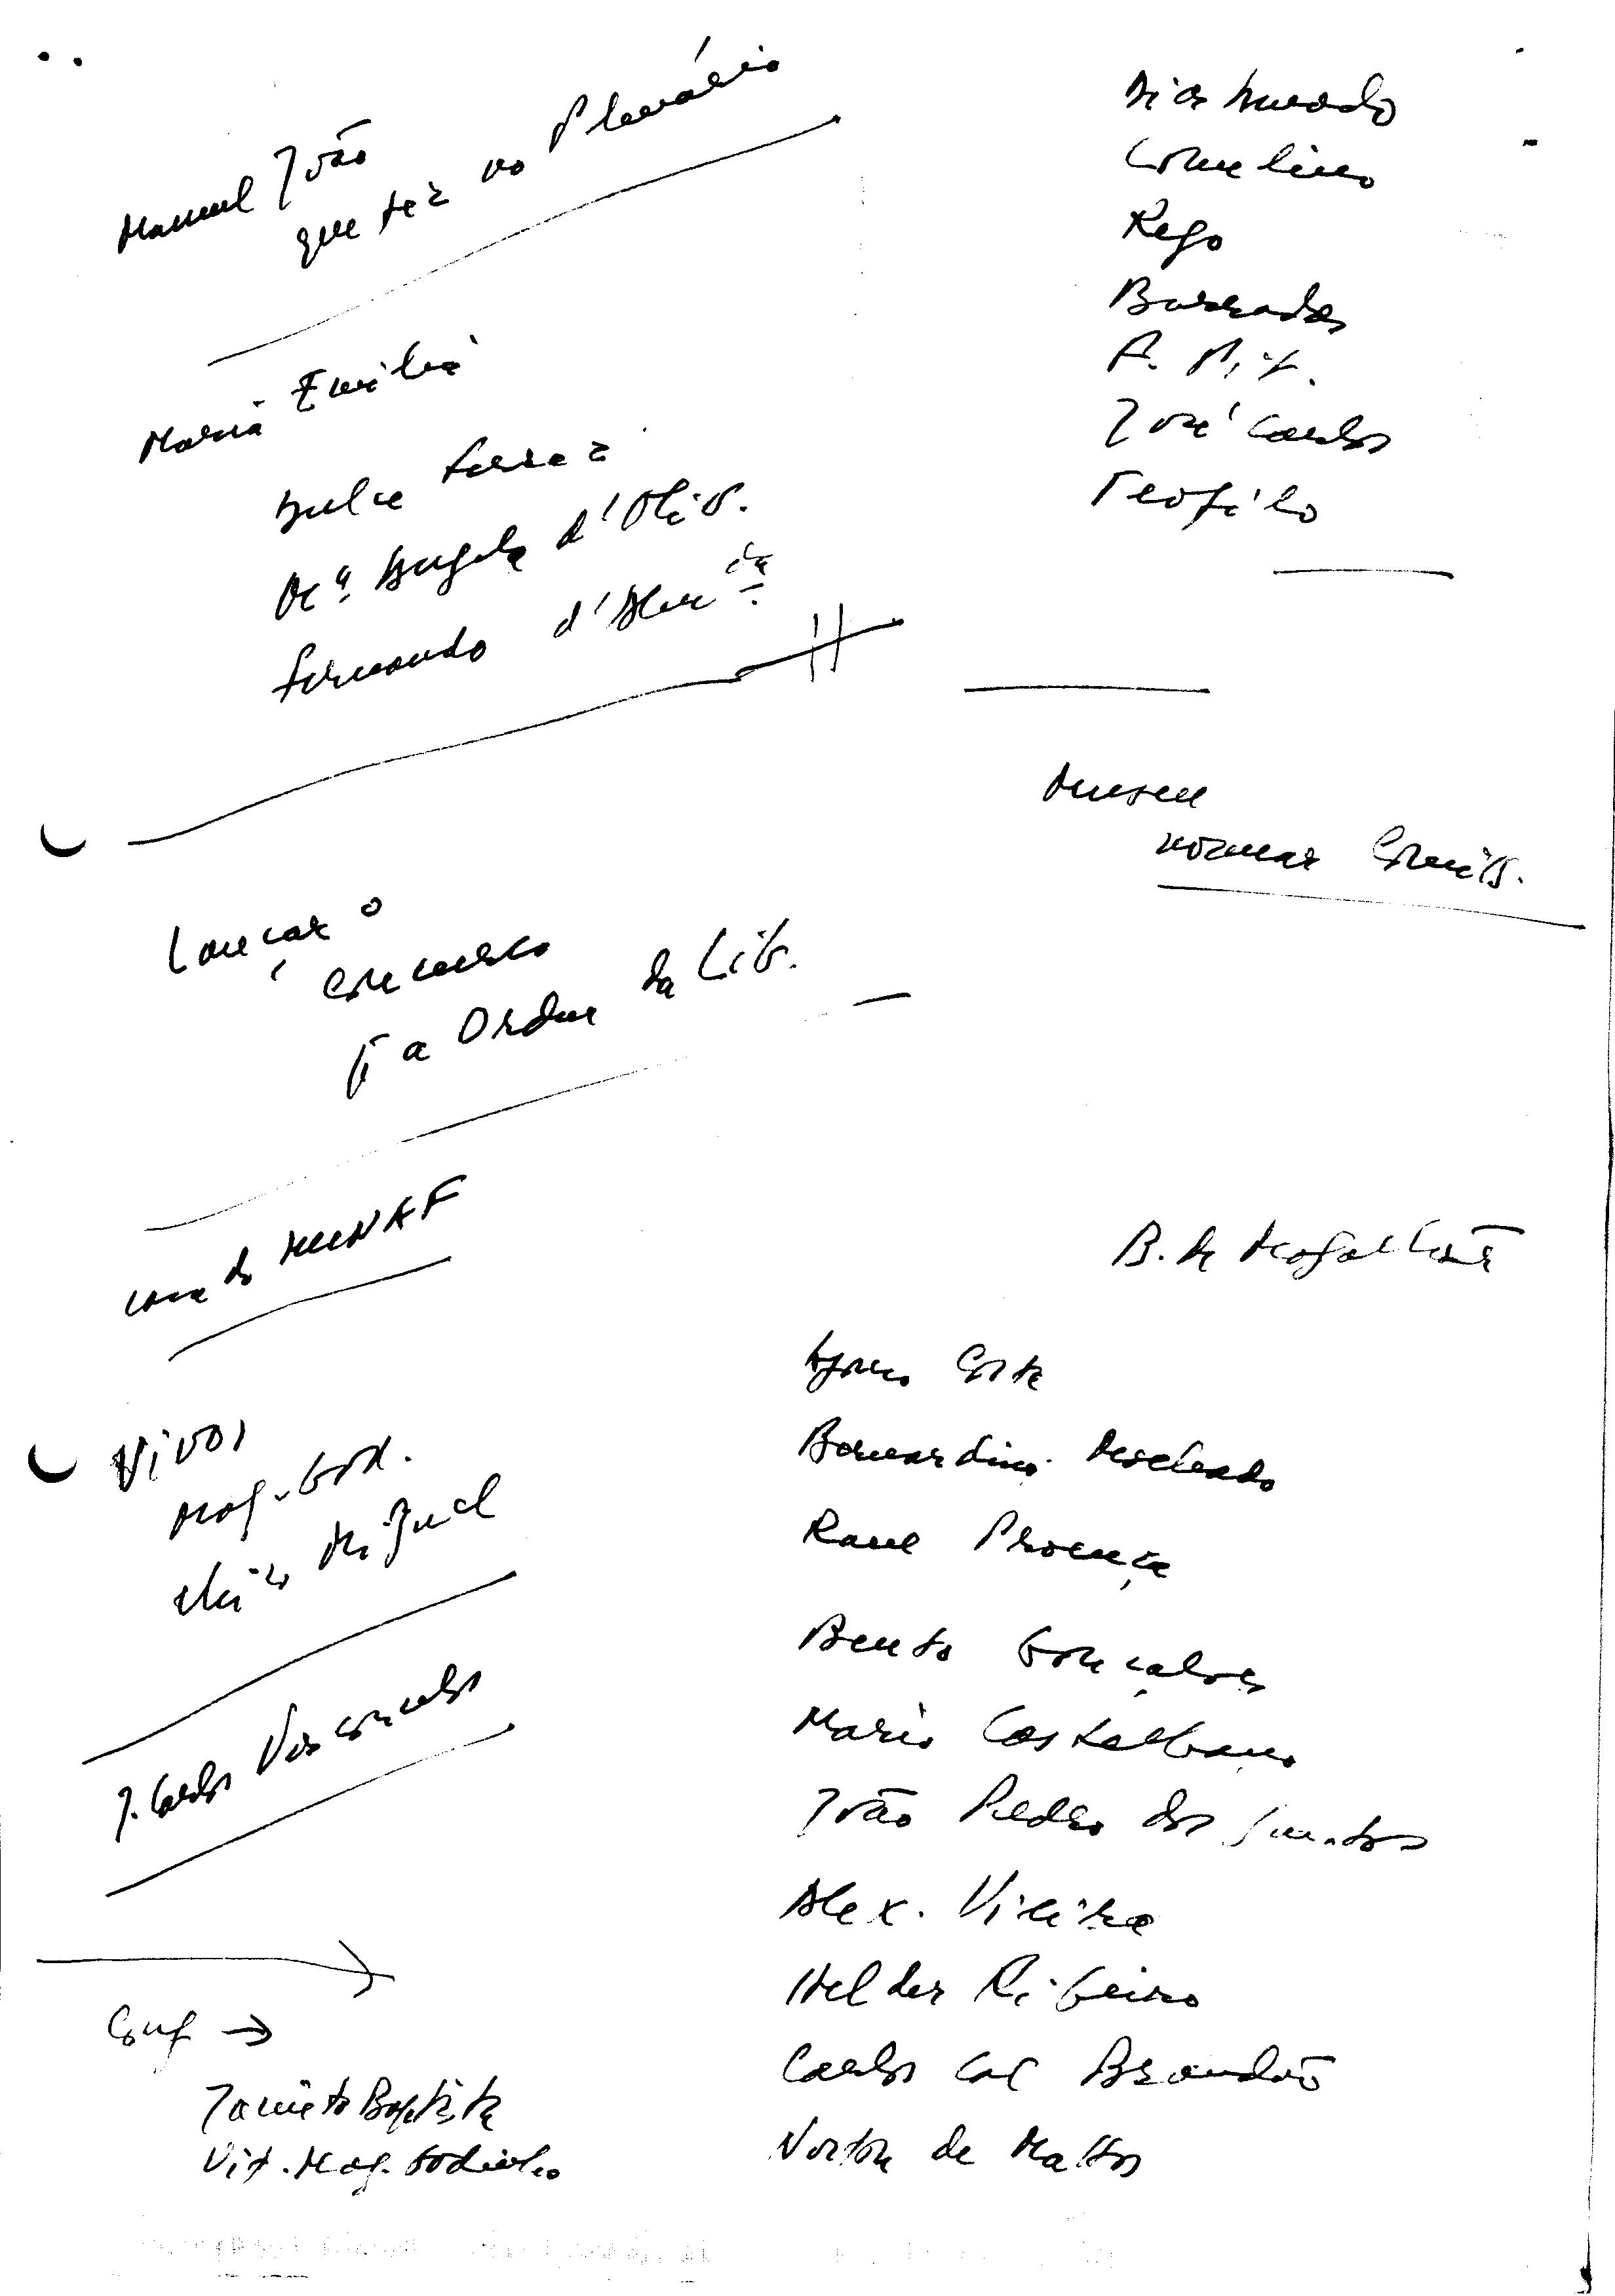 Manuel João
que fez no Plenário
Maria Emília
Dulce Ferraz
Mª Angela d'Oliv.
Fernando d'Almda
Lançar o
concurso
p a Ordem da Lib.
casa do MUNAF
Vivos
Mag. God.
Mário Miguel
J. Carlos Vasconcelos
Conf →
Jacinto Baptista
Vit. Mag. Godinho
Dias
Comelino
Rego
Barradas
F. Pit.
José Carlos
Teofilo
Museu
nomear Comis.
B. de Magalhães
Afonso Costa
Bernardino Machado
Raul Proença
Bento Gonçalves
Mario Castelhano
João Pedro dos Santos
Alex. Vieira
Helder Ribeiro
Carlos Cal Brandão
Norton de Mattos